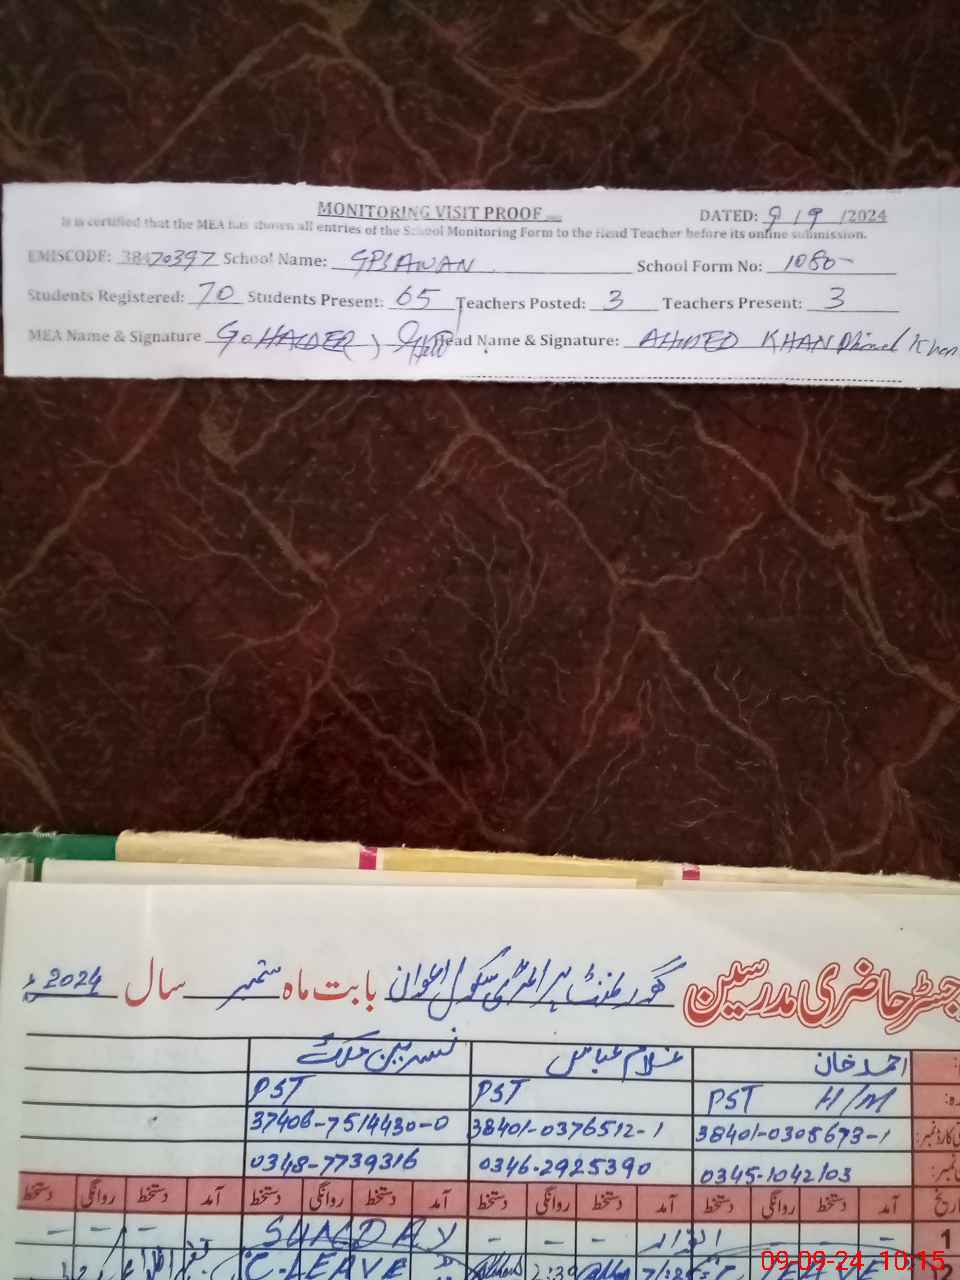 MONITORING VISIT PROOF
DATED: 9/9/2024
It is certified that the MEA has shown all entries of the School Monitoring Form to the Head Teacher before its online submission.
EMISCODE: 38470397 School Name: GPS AWAN School Form No: 1080
Students Registered: 70 Students Present: 65 Teachers Posted: 3 Teachers Present: 3
MEA Name & Signature G. HAIDER Head Name & Signature: AHMED KHAN Khan
رجسٹر حاضری مدرسین گورنمنٹ پرائمری سکول اعوان بابت ماہ ستمبر سال 2024ء
احمد خان غلام عباس نسرین
PST H/M PST PST
38401-0305673-1 38401-0376512-1 37406-7514430-0
0345-1042103 0346-2925390 0348-7739316
آمد دستخط روانگی دستخط آمد دستخط روانگی دستخط آمد دستخط روانگی دستخط آمد دستخط روانگی دستخط
1 اتوار - - - SUNDAY - - -
2 C. LEAVE
09-09-24 10:15